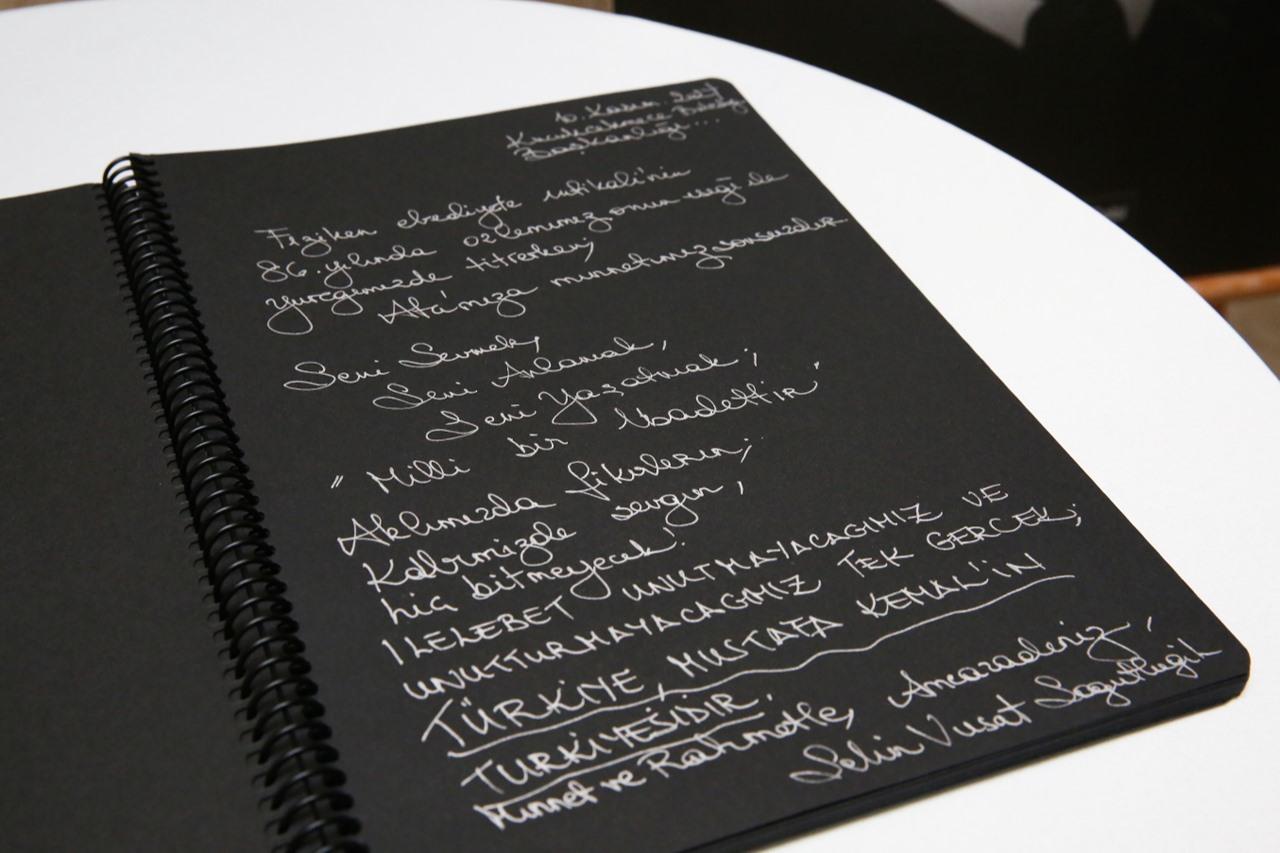 10. Kasım. 2024
Küçükçekmece Belediye
Başkanlığı...
Fiziken ebediyete intikali'nin
86. yılında özlemimiz onun ısığı ile
yüreğimizde titrerken;
Ata'mıza minnetimiz sonsuzdur
Seni Sevmek,
Seni Anlamak,
Seni Yaşatmak;
" Milli bir İbadettir"
Aklımızda fikirlerin;
Kalbimizde sevgin,
hiç bitmeyecek.
İLELEBET UNUTMAYACAĞIMIZ VE
UNUTTURMAYACAĞIMIZ TEK GERÇEK;
TÜRKİYE, MUSTAFA KEMAL'İN
TÜRKİYESİDİR.
Minnet ve Rahmetle, Amcazadeniz,
Selin Vusat Sögütlügil